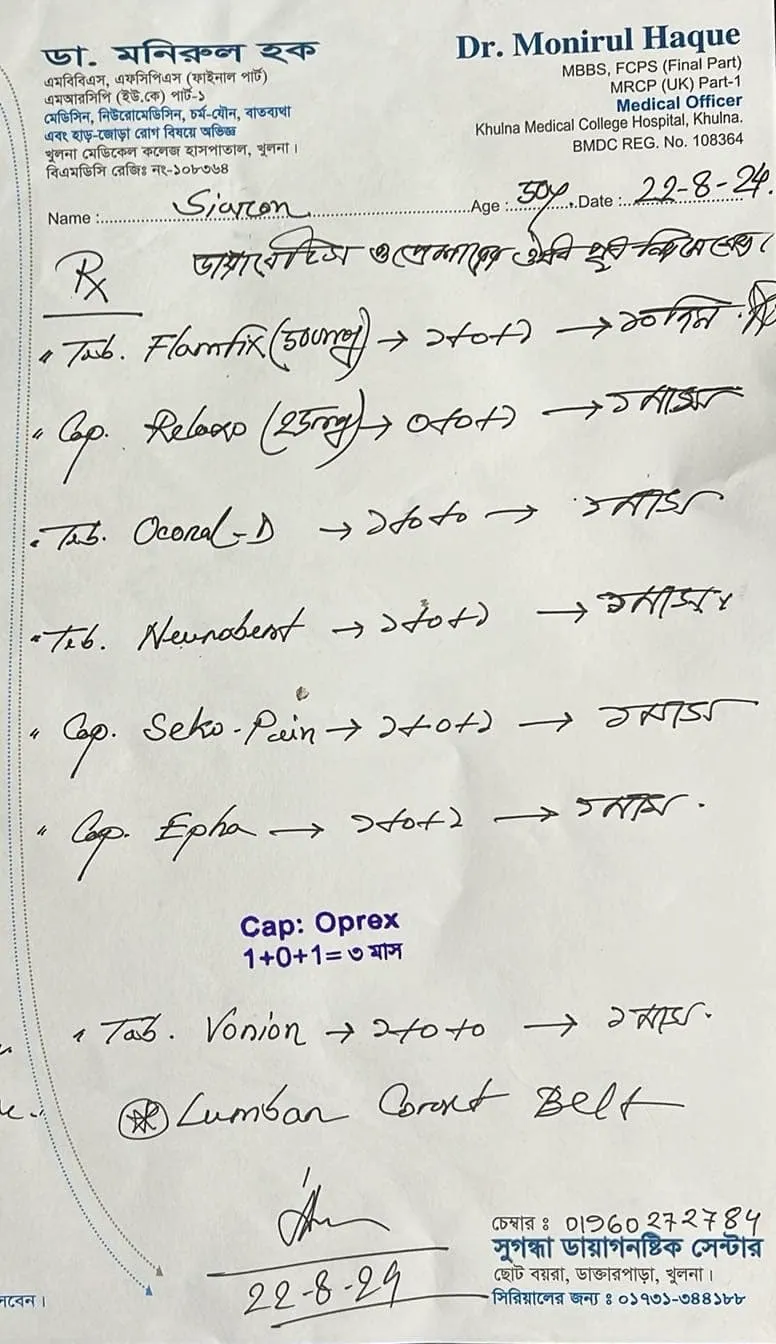 ডা. মনিরুল হক
এমবিবিএস, এফসিপিএস (ফাইনাল পার্ট)
এমআরসিপি (ইউ.কে) পার্ট-১
মেডিসিন, নিউরোমেডিসিন, চর্ম-যৌন, বাতব্যথা
এবং হাড়-জোড়া রোগ বিষয়ে অভিজ্ঞ
খুলনা মেডিকেল কলেজ হাসপাতাল, খুলনা।
বিএমডিসি রেজিঃ নং-১০৮৩৬৪
Dr. Monirul Haque
MBBS, FCPS (Final Part)
MRCP (UK) Part-1
Medical Officer
Khulna Medical College Hospital, Khulna.
BMDC REG. No. 108364
Name : Age : 50y Date : 22-8-24.
Rx
ডায়াবেটিস ও প্রেশারের ঔষধ
Tab. Flamfix (500mg) → ১+০+১ → ১০ দিন
Cap. Relaxo (25mg) → ০+০+১ → ১ মাস
Tab. Ocoral-D → ১+০+০ → ১ মাস
Tab. Neurobest → ১+০+১ → ১ মাস
Cap. Seko-Pain → ১+০+১ → ১ মাস
Cap. Epha → ১+০+১ → ১ মাস.
Cap: Oprex
1+0+1= ৩ মাস
Tab. Vonion → ১+০+০ → ১ মাস.
Lumbar Corset Belt
22-8-24
চেম্বার ঃ 01960272784
সুগন্ধা ডায়াগনষ্টিক সেন্টার
ছোট বয়রা, ডাক্তারপাড়া, খুলনা।
সিরিয়ালের জন্য ঃ ০১৭৩১-৩৪৪১৮৮